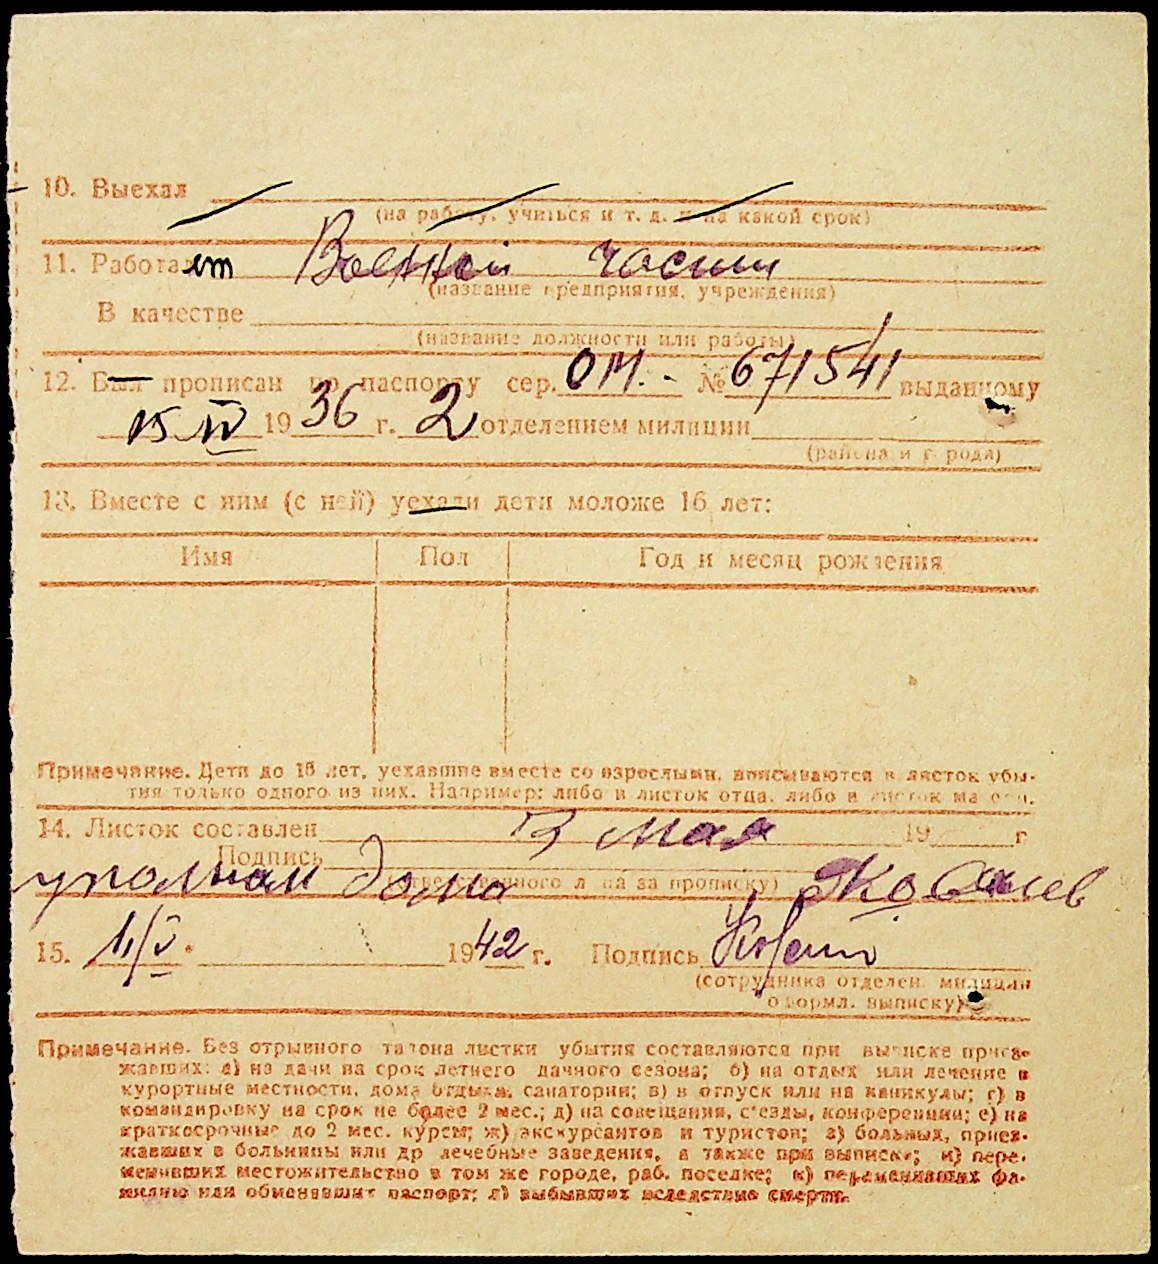 10. Выехал
(на работу, учиться и т. д. и на какой срок)
11. Работает Военной части
(название предприятия, учреждения)
В качестве
(название должности или работы)
12. Был прописан по паспорту сер. ОМ. - № 671541 выданному
15 IV 1936 г. 2 отделением милиции
(района и города)
13. Вместе с ним (с ней) уехали дети моложе 16 лет:
Имя Пол Год и месяц рождения
Примечание. Дети до 16 лет, уехавшие вместе со взрослыми, вписываются в листок убы-
тия только одного из них. Например: либо в листок отца, либо в листок матери.
14. Листок составлен 3 мая 19 г
Подпись
уполном дома Яковлев
(ответственного лица за прописку)
15. 1/V 1942 г. Подпись
(сотрудника отделен. милиции
оформл. выписку)
Примечание. Без отрывного талона листки убытия составляются при выписке приез-
жавших: а) на дачи на срок летнего дачного сезона; б) на отдых или лечение в
курортные местности, дома отдыха, санатории; в) в отпуск или на каникулы; г) в
командировку на срок не более 2 мес.; д) на совещания, с'езды, конференции; е) на
краткосрочные до 2 мес. курсы; ж) экскурсантов и туристов; з) больных, приез-
жавших в больницы или др лечебные заведения, а также при выписке; и) пере-
менивших местожительство в том же городе, раб. поселке; к) переменивших фа-
милию или обменявших паспорт; л) выбывших вследствие смерти.